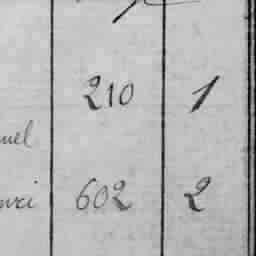 210 1
uel
nri 602 2